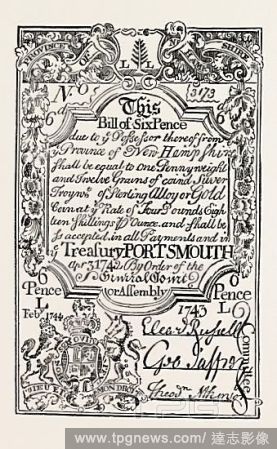 PROVINCE OF NEW HAMPSHIRE
L L
No 3173
6 6
This
Bill of Six Pence
due to ye Possessor thereof from
ye Province of New Hampshire
shall be equal to one Pennyweight
and Twelve Grains of coind Silver
Troyws of Sterling Alloy or Gold
Coin at ye Rate of Four Pounds Eigh
teen Shillings ye Ounce, and shall be
so accepted in all Payments and in
ye Treasury PORTSMOUTH
Apr 3 1742 By Order of the
General Court
or Assembly
6 6
Pence Pence
L L
Feb 1744 1743
Committee
Elear Russell
Geo Jaffrey
Theodr Atkinson
DIEU ET MON DROIT
www.tpgnews.com / 達志影像